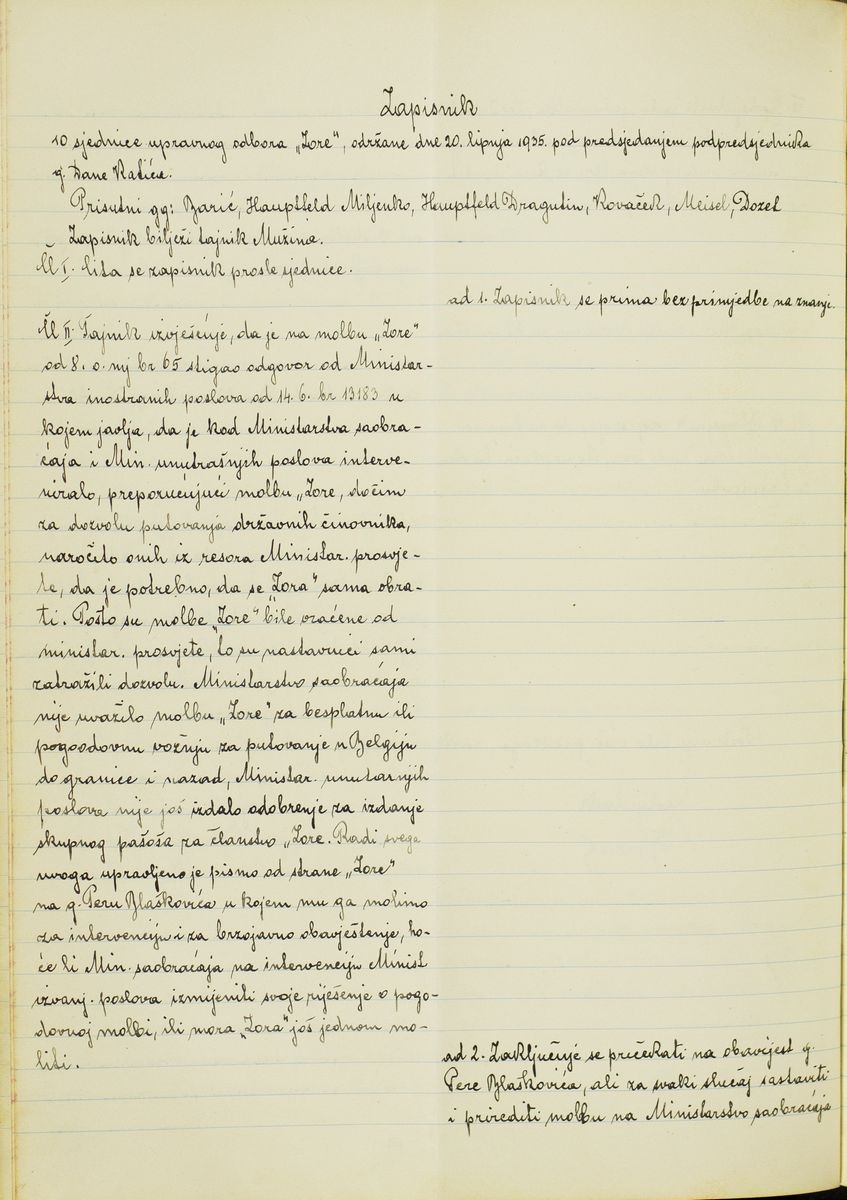 Zapisnik
10 sjednice upravnog odbora „Zore“, održane dne 20. lipnja 1935. pod predsjedanjem podpredsjednika
g. Dane Katića.
Prisutni gg: Barić, Hauptfeld Miljenko, Hauptfeld Dragutin, Kovaček, Meisel, Dozet
Zapisnik bilježi tajnik Mužina.
Čl I. čita se zapisnik prošle sjednice.
ad 1. Zapisnik se prima bez primjedbe na znanje.
Čl II. Tajnik izvješćuje, da je na molbu „Zore“
od 8. o. mj br 65 stigao odgovor od Ministar-
stva inostranih poslova od 14. 6. br 13183 u
kojem javlja, da je kod Ministarstva saobra-
ćaja i Min. unutrašnjih poslova interve-
niralo, preporučujući molbu „Zore, dočim
za dozvolu putovanja državnih činovnika,
naročito onih iz resora Ministar. prosvje-
te, da je potrebno, da se „Zora“ sama obra-
ti. Pošto su molbe „Zore“ bile vraćene od
ministar. prosvjete, to su nastavnici sami
zatražili dozvolu. Ministarstvo saobraćaja
nije uvažilo molbu „Zore“ za besplatnu ili
pogoodovnu vožnju za putovanje u Belgiju
do granice i nazad, Ministar. unutarnjih
poslova nije još izdalo odobrenje za izdanje
skupnog pašoša za članstvo „Zore. Radi svega
uvoga upravljeno je pismo od strane „Zore“
na g. Peru Blaškovića u kojem mu ga molimo
za intervenciju i za brzojavno obavještenje, ho-
će li Min. saobraćaja na intervenciju Minist
izvanj. poslova izmijeniti svoje riješenje o pogo-
dovnoj molbi, ili mora „Zora“ još jednom mo-
liti.
ad 2. Zaključuje se pričekati na obavijest g.
Pere Blaškovića, ali za svaki slučaj sastaviti
i prirediti molbu na Ministarstvo saobraćaja